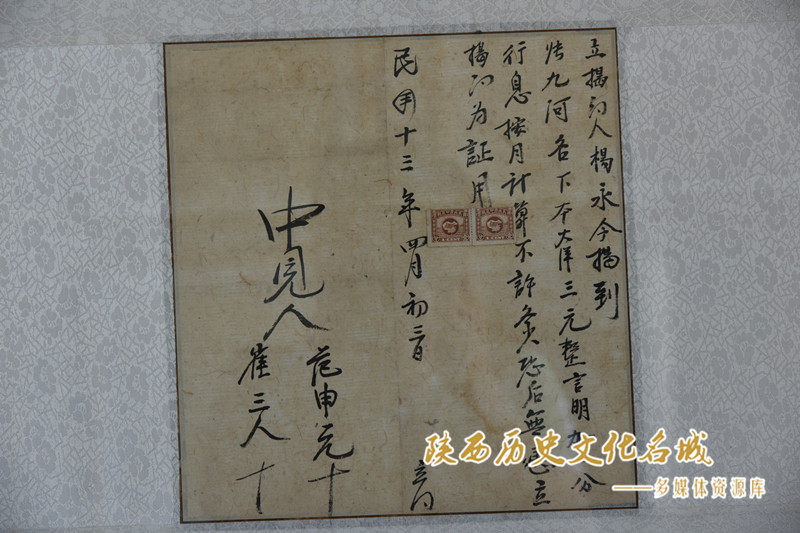 立揭约人楊永今揭到
张九河名下本大洋三元整言明九分
行息按月计算不許欠恐后無凭立
揭约为証用
民国十三年四月初三日 立约
中見人
范申元十
崔三人十
陕西历史文化名城
——多媒体资源库